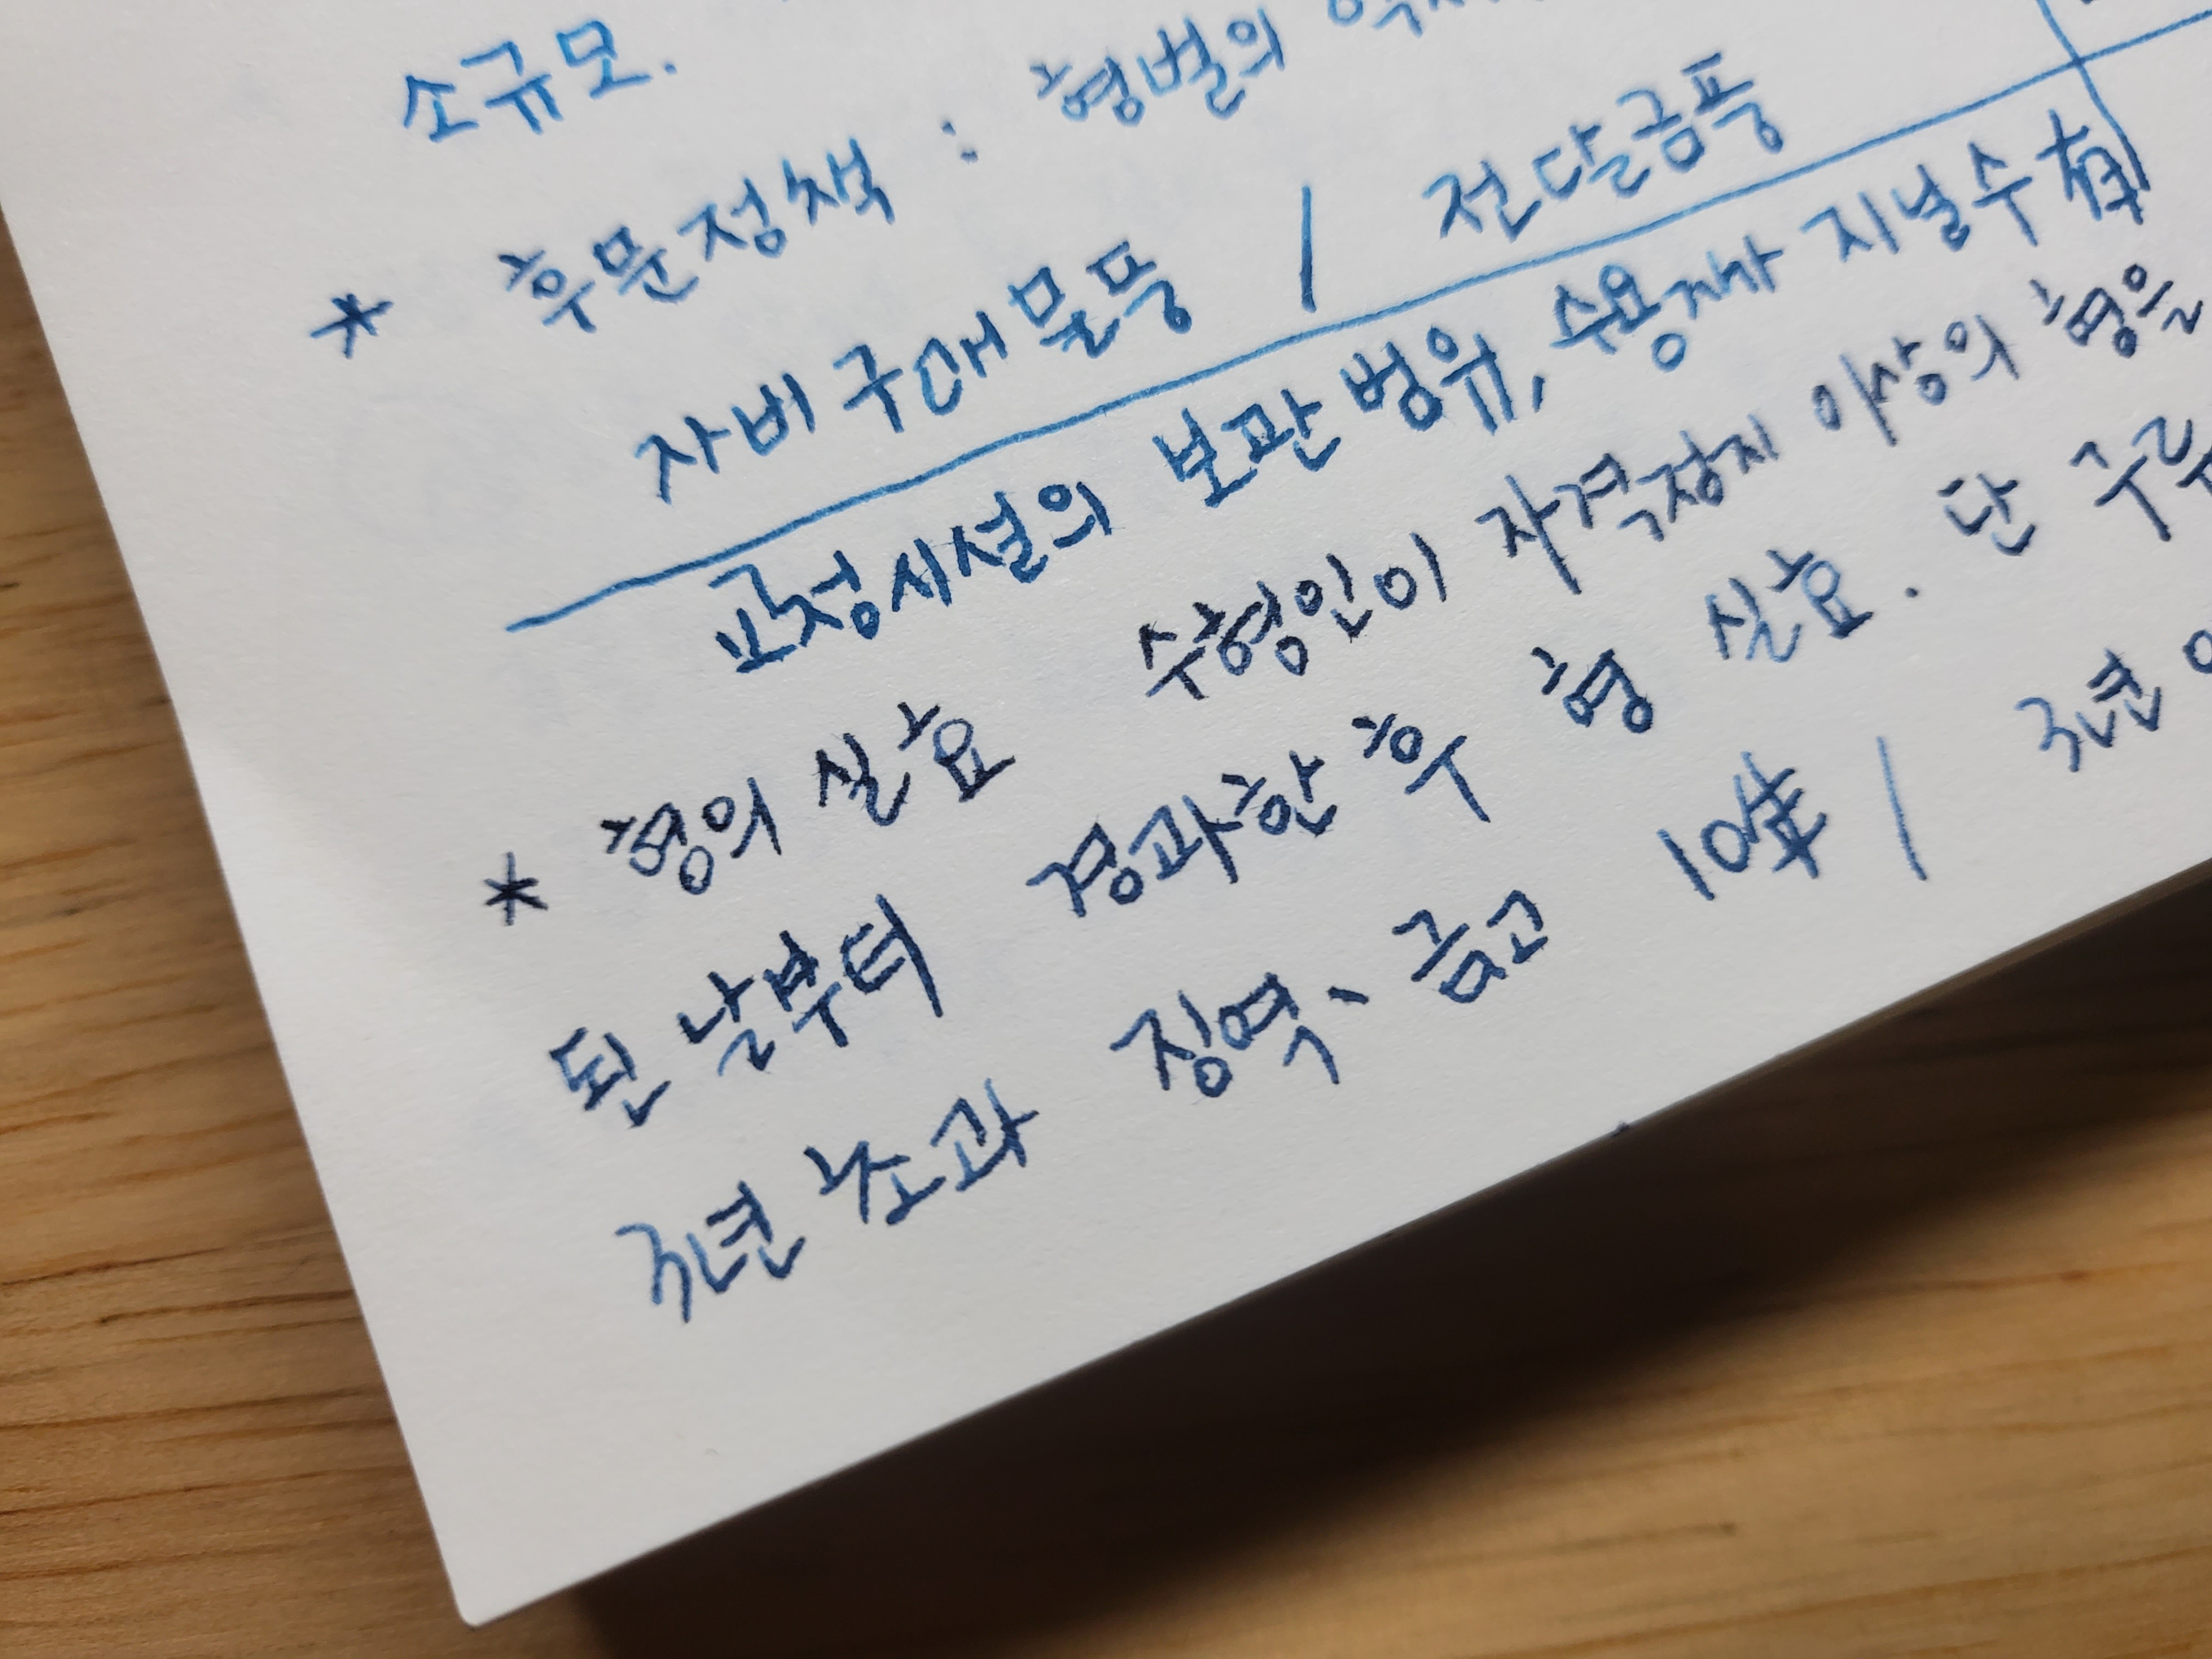 소규모.
* 후문정책 : 형벌의
자비구매물품 / 전달금품
교정시설의 보관범위, 수용자가 지닐수 有
* 형의 실효 수형인이 자격정지 이상의 형을
된 날부터 경과한 후 형 실효. 단 구류
3년 초과 징역、금고 10年 / 3년